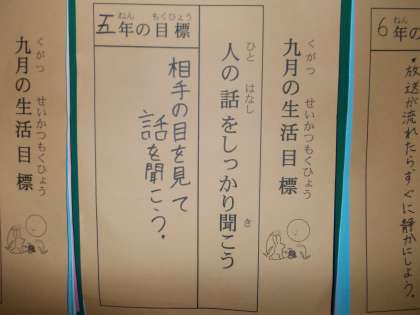 九月の生活目標
くがつ せいかつもくひょう
人の話をしっかり聞こう
ひと はなし き
五年の目標
ねん もくひょう
相手の目を見て
話を聞こう。
6年の
ねん
・放送が流れたらすぐに静かにしよう。
九月の生活目標
くがつ せいかつもくひょう